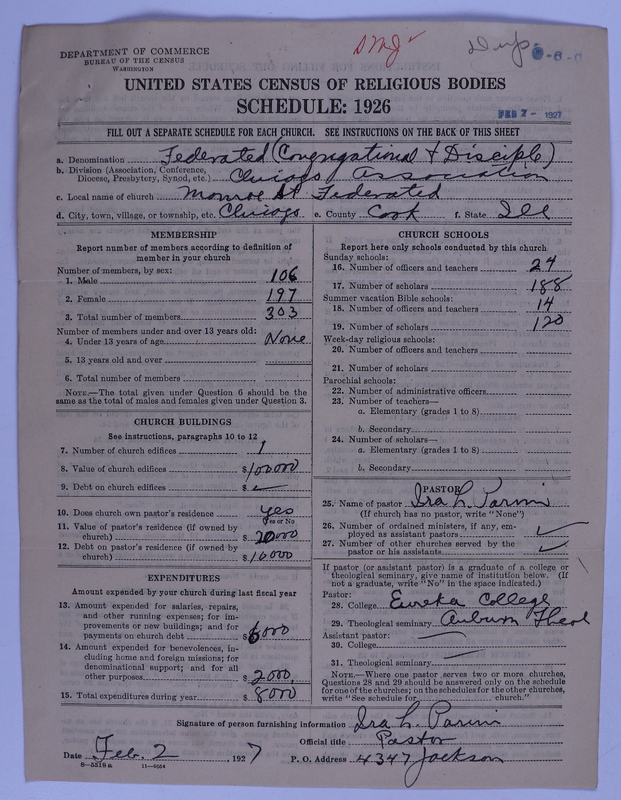 DEPARTMENT OF COMMERCE
BUREAU OF THE CENSUS
WASHINGTON
UNITED STATES CENSUS OF RELIGIOUS BODIES
SCHEDULE: 1926
FEB 7 - 1927
FILL OUT A SEPARATE SCHEDULE FOR EACH CHURCH. SEE INSTRUCTIONS ON THE BACK OF THIS SHEET
a. Denomination Federated (Congregational & Disciple)
b. Division (Association, Conference, Diocese, Presbytery, Synod, etc.) Chicago Association
c. Local name of church Monroe St Federated
d. City, town, village, or township, etc. Chicago e. County Cook f. State Ill
MEMBERSHIP
Report number of members according to definition of
member in your church
Number of members, by sex:
1. Male 106
2. Female 197
3. Total number of members 303
Number of members under and over 13 years old:
4. Under 13 years of age None
5. 13 years old and over
6. Total number of members
NOTE.—The total given under Question 6 should be the
same as the total of males and females given under Question 3.
CHURCH BUILDINGS
See instructions, paragraphs 10 to 12
7. Number of church edifices 1
8. Value of church edifices $100000
9. Debt on church edifices $
10. Does church own pastor's residence yes
Yes or No
11. Value of pastor's residence (if owned by
church) $20000
12. Debt on pastor's residence (if owned by
church) $10000
EXPENDITURES
Amount expended by your church during last fiscal year
13. Amount expended for salaries, repairs,
and other running expenses; for im-
provements or new buildings; and for
payments on church debt $6000
14. Amount expended for benevolences, in-
cluding home and foreign missions; for
denominational support; and for all
other purposes $2000
15. Total expenditures during year $8000
CHURCH SCHOOLS
Report here only schools conducted by this church
Sunday schools:
16. Number of officers and teachers 24
17. Number of scholars 188
Summer vacation Bible schools:
18. Number of officers and teachers 14
19. Number of scholars 120
Week-day religious schools:
20. Number of officers and teachers
21. Number of scholars
Parochial schools:
22. Number of administrative officers
23. Number of teachers—
a. Elementary (grades 1 to 8)
b. Secondary
24. Number of scholars—
a. Elementary (grades 1 to 8)
b. Secondary
PASTOR
25. Name of pastor Ira L. Parvin
(If church has no pastor, write "None")
26. Number of ordained ministers, if any, em-
ployed as assistant pastors
27. Number of other churches served by the
pastor or his assistants
If pastor (or assistant pastor) is a graduate of a college or
theological seminary, give name of institution below. (If
not a graduate, write "No" in the space indicated.)
Pastor:
28. College Eureka College
29. Theological seminary Auburn Theol
Assistant pastor:
30. College
31. Theological seminary
NOTE.—Where one pastor serves two or more churches,
Questions 28 and 29 should be answered only on the schedule
for one of the churches; on the schedules for the other churches,
write "See schedule for church."
Signature of person furnishing information Ira L. Parvin
Official title Pastor
Date Feb. 2, 1927 P. O. Address 4347 Jackson
8—5518a 11—9064